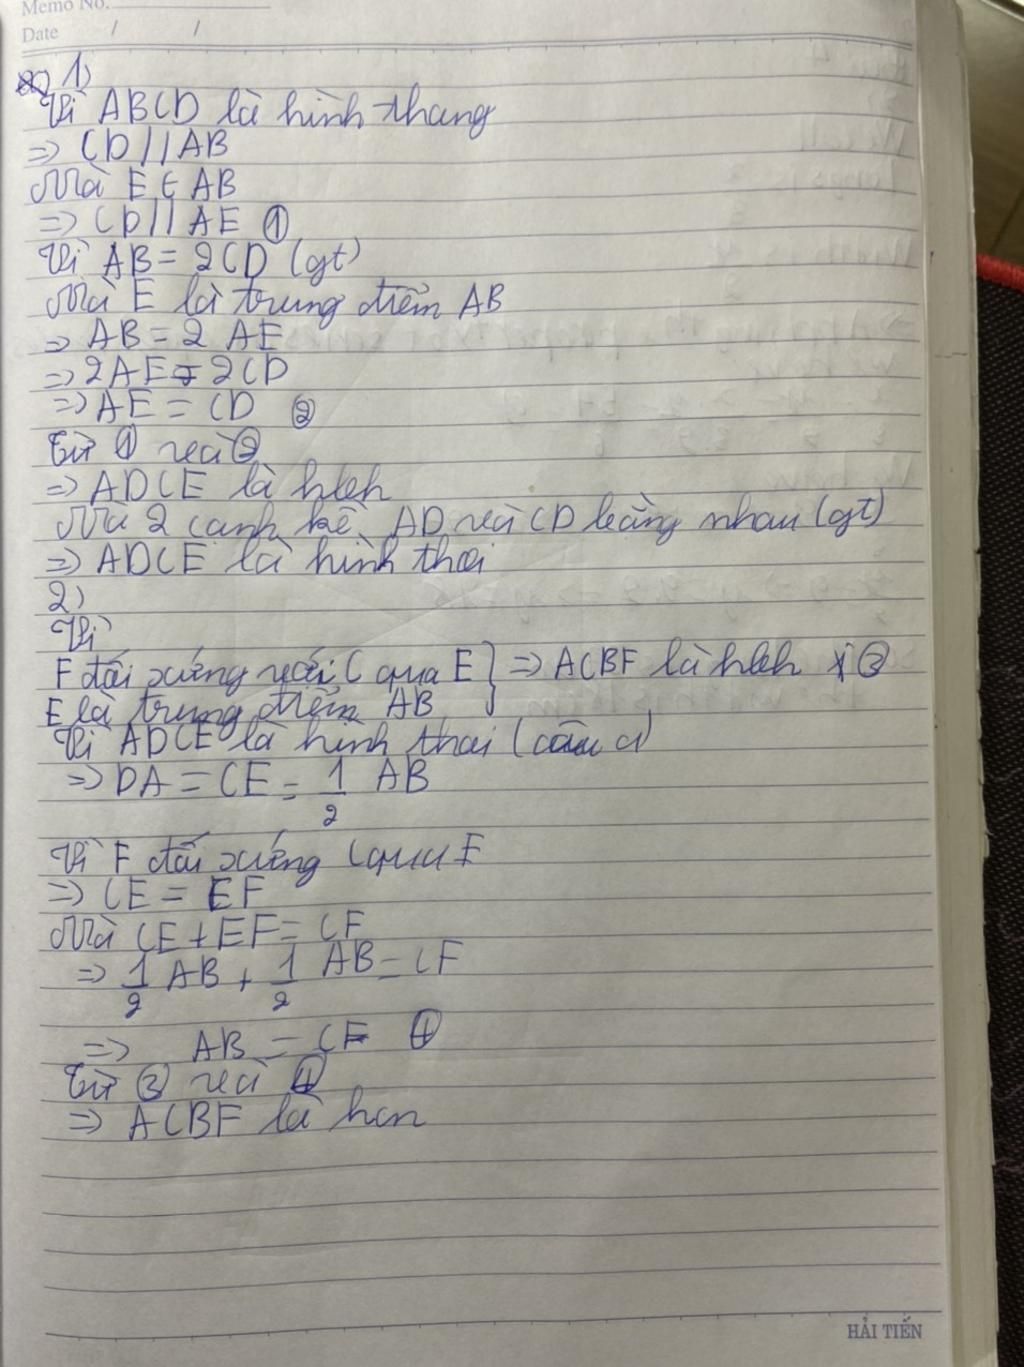 Memo No.
Date / /
1)
Vì ABCD là hình thang
=> CD // AB
Mà E ∈ AB
=> CD // AE ①
Vì AB = 2CD (gt)
Mà E là trung điểm AB
=> AB = 2 AE
=> 2AE = 2CD
=> AE = CD ②
Từ ① và ②
=> ADCE là hbh
Mà 2 cạnh kề AD và CD bằng nhau (gt)
=> ADCE là hình thoi
2)
Vì
F đối xứng với C qua E } => ACBF là hbh ③
E là trung điểm AB
Vì ADCE là hình thoi (câu a)
=> DA = CE = 1/2 AB
Vì F đối xứng C qua E
=> CE = EF
Mà CE + EF = CF
=> 1/2 AB + 1/2 AB = CF
=> AB = CF ④
Từ ③ và ④
=> ACBF là hcn
HẢI TIẾN